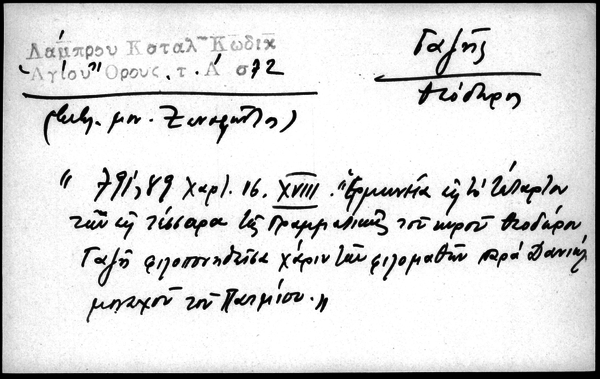 Λάμπρου Καταλ. Κώδικ
Ἁγίου Ὄρους, τ. Α σ 72
Γαζῆς
Θεόδωρος
(Βιβλ. μον. Ξενοφῶντος)
" 791, 89 χαρτ. 16. XVIII. "Ἑρμηνεία εἰς τὸ τέταρτον
τῶν εἰς τέσσαρα τῆς Γραμματικῆς τοῦ κυροῦ Θεοδώρου
Γαζῆ φιλοπονηθεῖσα χάριν τῶν φιλομαθῶν παρὰ Δανιὴλ
μοναχοῦ τοῦ Πατμίου."